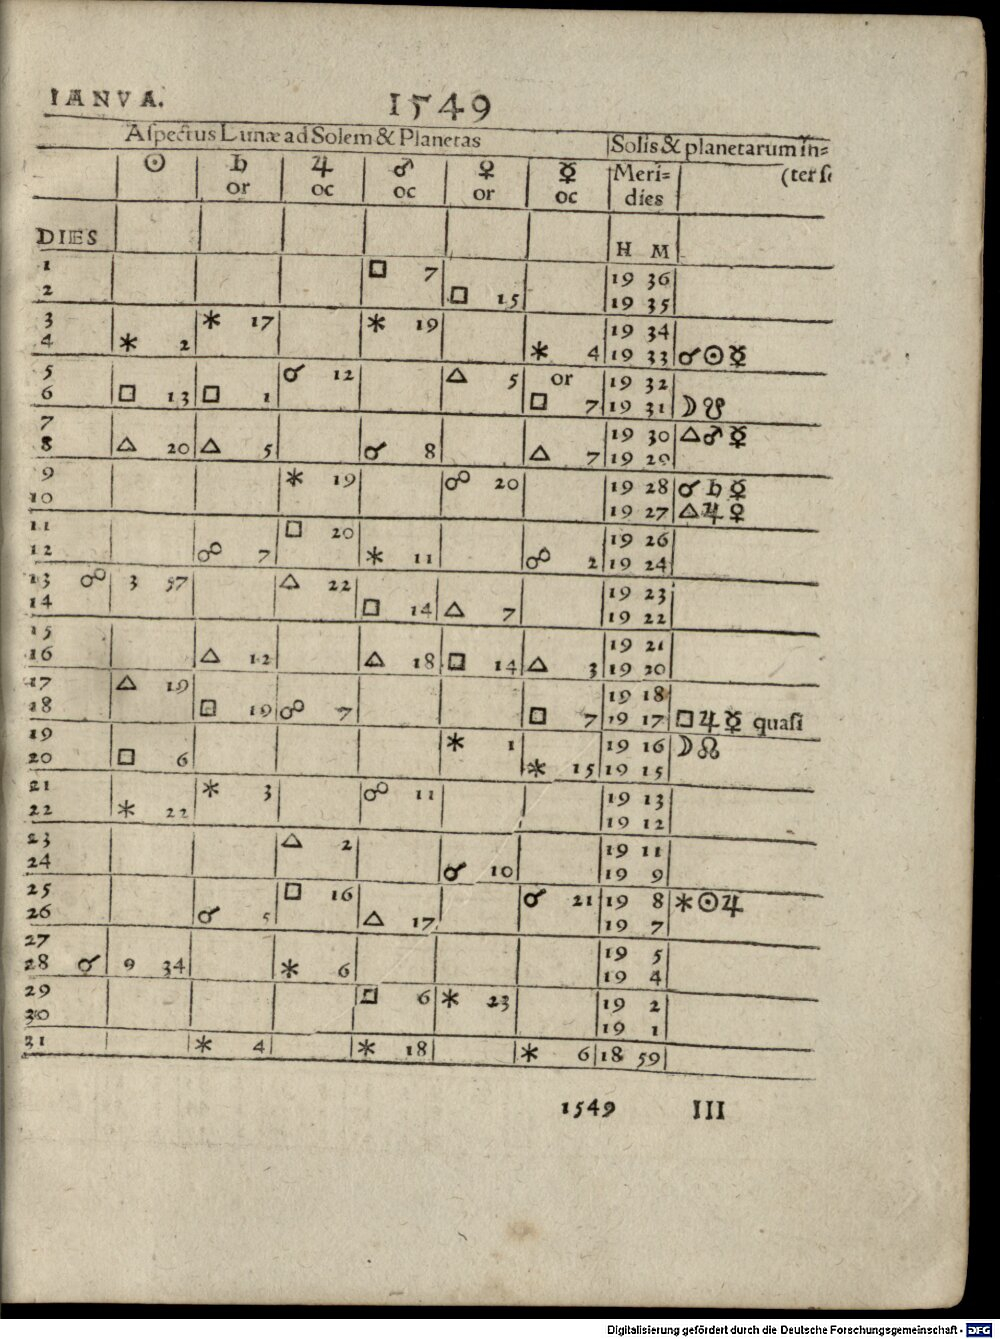 IANVA. 1549
Aſpectus Lunæ ad Solem & Planetas Solis & planetarum in=
☉ ♄ ♃ ♂ ♀ ☿ Meri= (ter ſe
or oc oc or oc dies
DIES H M
1 □ 7 19 36
2 □ 15 19 35
3 ⚹ 17 ⚹ 19 19 34
4 ⚹ 2 ⚹ 4 19 33 ☌☉☿
5 ☌ 12 △ 5 or 19 32
6 □ 13 □ 1 □ 7 19 31 ☽☋
7 19 30 △♂☿
8 △ 20 △ 5 ☌ 8 △ 7 19 29
9 ⚹ 19 ☍ 20 19 28 ☌♄☿
10 19 27 △♃♀
11 □ 20 19 26
12 ☍ 7 ⚹ 11 ☍ 2 19 24
13 ☍ 3 57 △ 22 19 23
14 □ 14 △ 7 19 22
15 19 21
16 △ 12 △ 18 □ 14 △ 3 19 20
17 △ 19 19 18
18 □ 19 ☍ 7 □ 7 19 17 □♃☿ quaſi
19 ⚹ 1 19 16 ☽☊
20 □ 6 ⚹ 15 19 15
21 ⚹ 3 ☍ 11 19 13
22 ⚹ 22 19 12
23 △ 2 19 11
24 ☌ 10 19 9
25 □ 16 ☌ 21 19 8 ⚹☉♃
26 ☌ 5 △ 17 19 7
27 19 5
28 ☌ 9 34 ⚹ 6 19 4
29 □ 6 ⚹ 23 19 2
30 19 1
31 ⚹ 4 ⚹ 18 ⚹ 6 18 59
1549 III
Digitalisierung gefördert durch die Deutsche Forschungsgemeinschaft - DFG